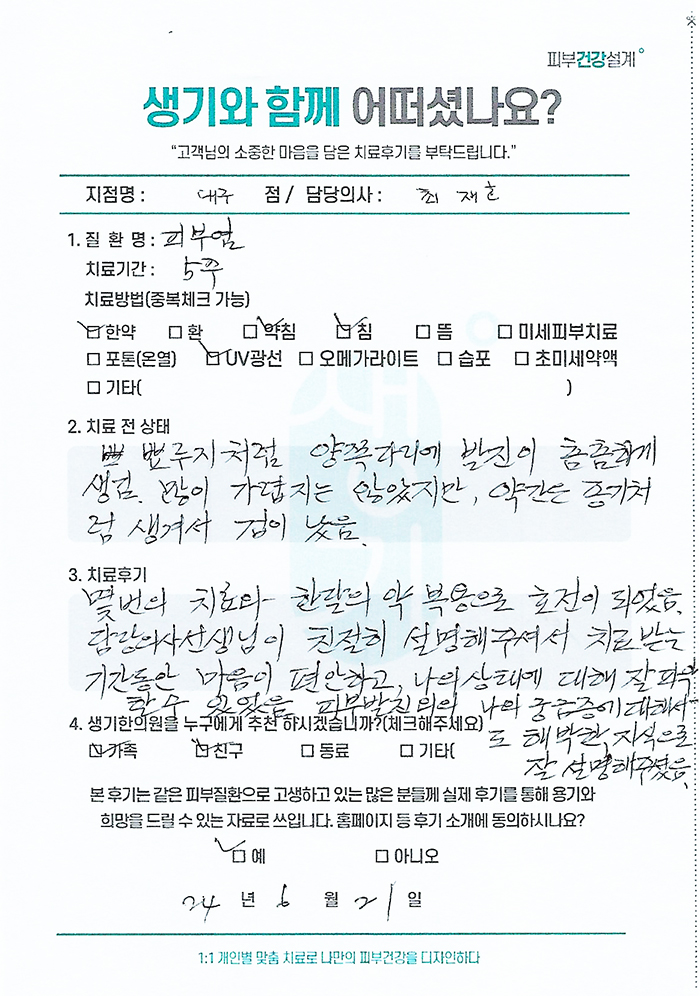 피부건강설계
생기와 함께 어떠셨나요?
"고객님의 소중한 마음을 담은 치료후기를 부탁드립니다."
지점명 : 대구 점 / 담당의사 : 최재호
1. 질 환 명 : 피부염
치료기간 : 5주
치료방법(중복체크 가능)
☑ 한약 □ 환 ☑ 약침 ☑ 침 □ 뜸 □ 미세피부치료
□ 포톤(온열) ☑ UV광선 □ 오메가라이트 □ 습포 □ 초미세약액
□ 기타( )
2. 치료 전 상태
뾰루지처럼 양쪽다리에 발진이 촘촘하게
생김. 많이 가렵지는 않았지만, 약간은 증기처
럼 생겨서 겁이 났음.
3. 치료후기
몇번의 치료와 한달의 약 복용으로 호전이 되었음.
담당의사선생님이 친절히 설명해주셔서 치료받는
기간동안 마음이 편안하고, 나의상태에 대해 잘파악
할 수 있었음. 피부발진외의 나의 궁금증에대해서
도 해박한 지식으로
잘 설명해주셨음.
4. 생기한의원을 누구에게 추천 하시겠습니까?(체크해주세요)
☑ 가족 ☑ 친구 □ 동료 □ 기타(
본 후기는 같은 피부질환으로 고생하고 있는 많은 분들께 실제 후기를 통해 용기와
희망을 드릴 수 있는 자료로 쓰입니다. 홈페이지 등 후기 소개에 동의하시나요?
☑ 예 □ 아니오
24 년 6 월 21 일
1:1 개인별 맞춤 치료로 나만의 피부건강을 디자인하다